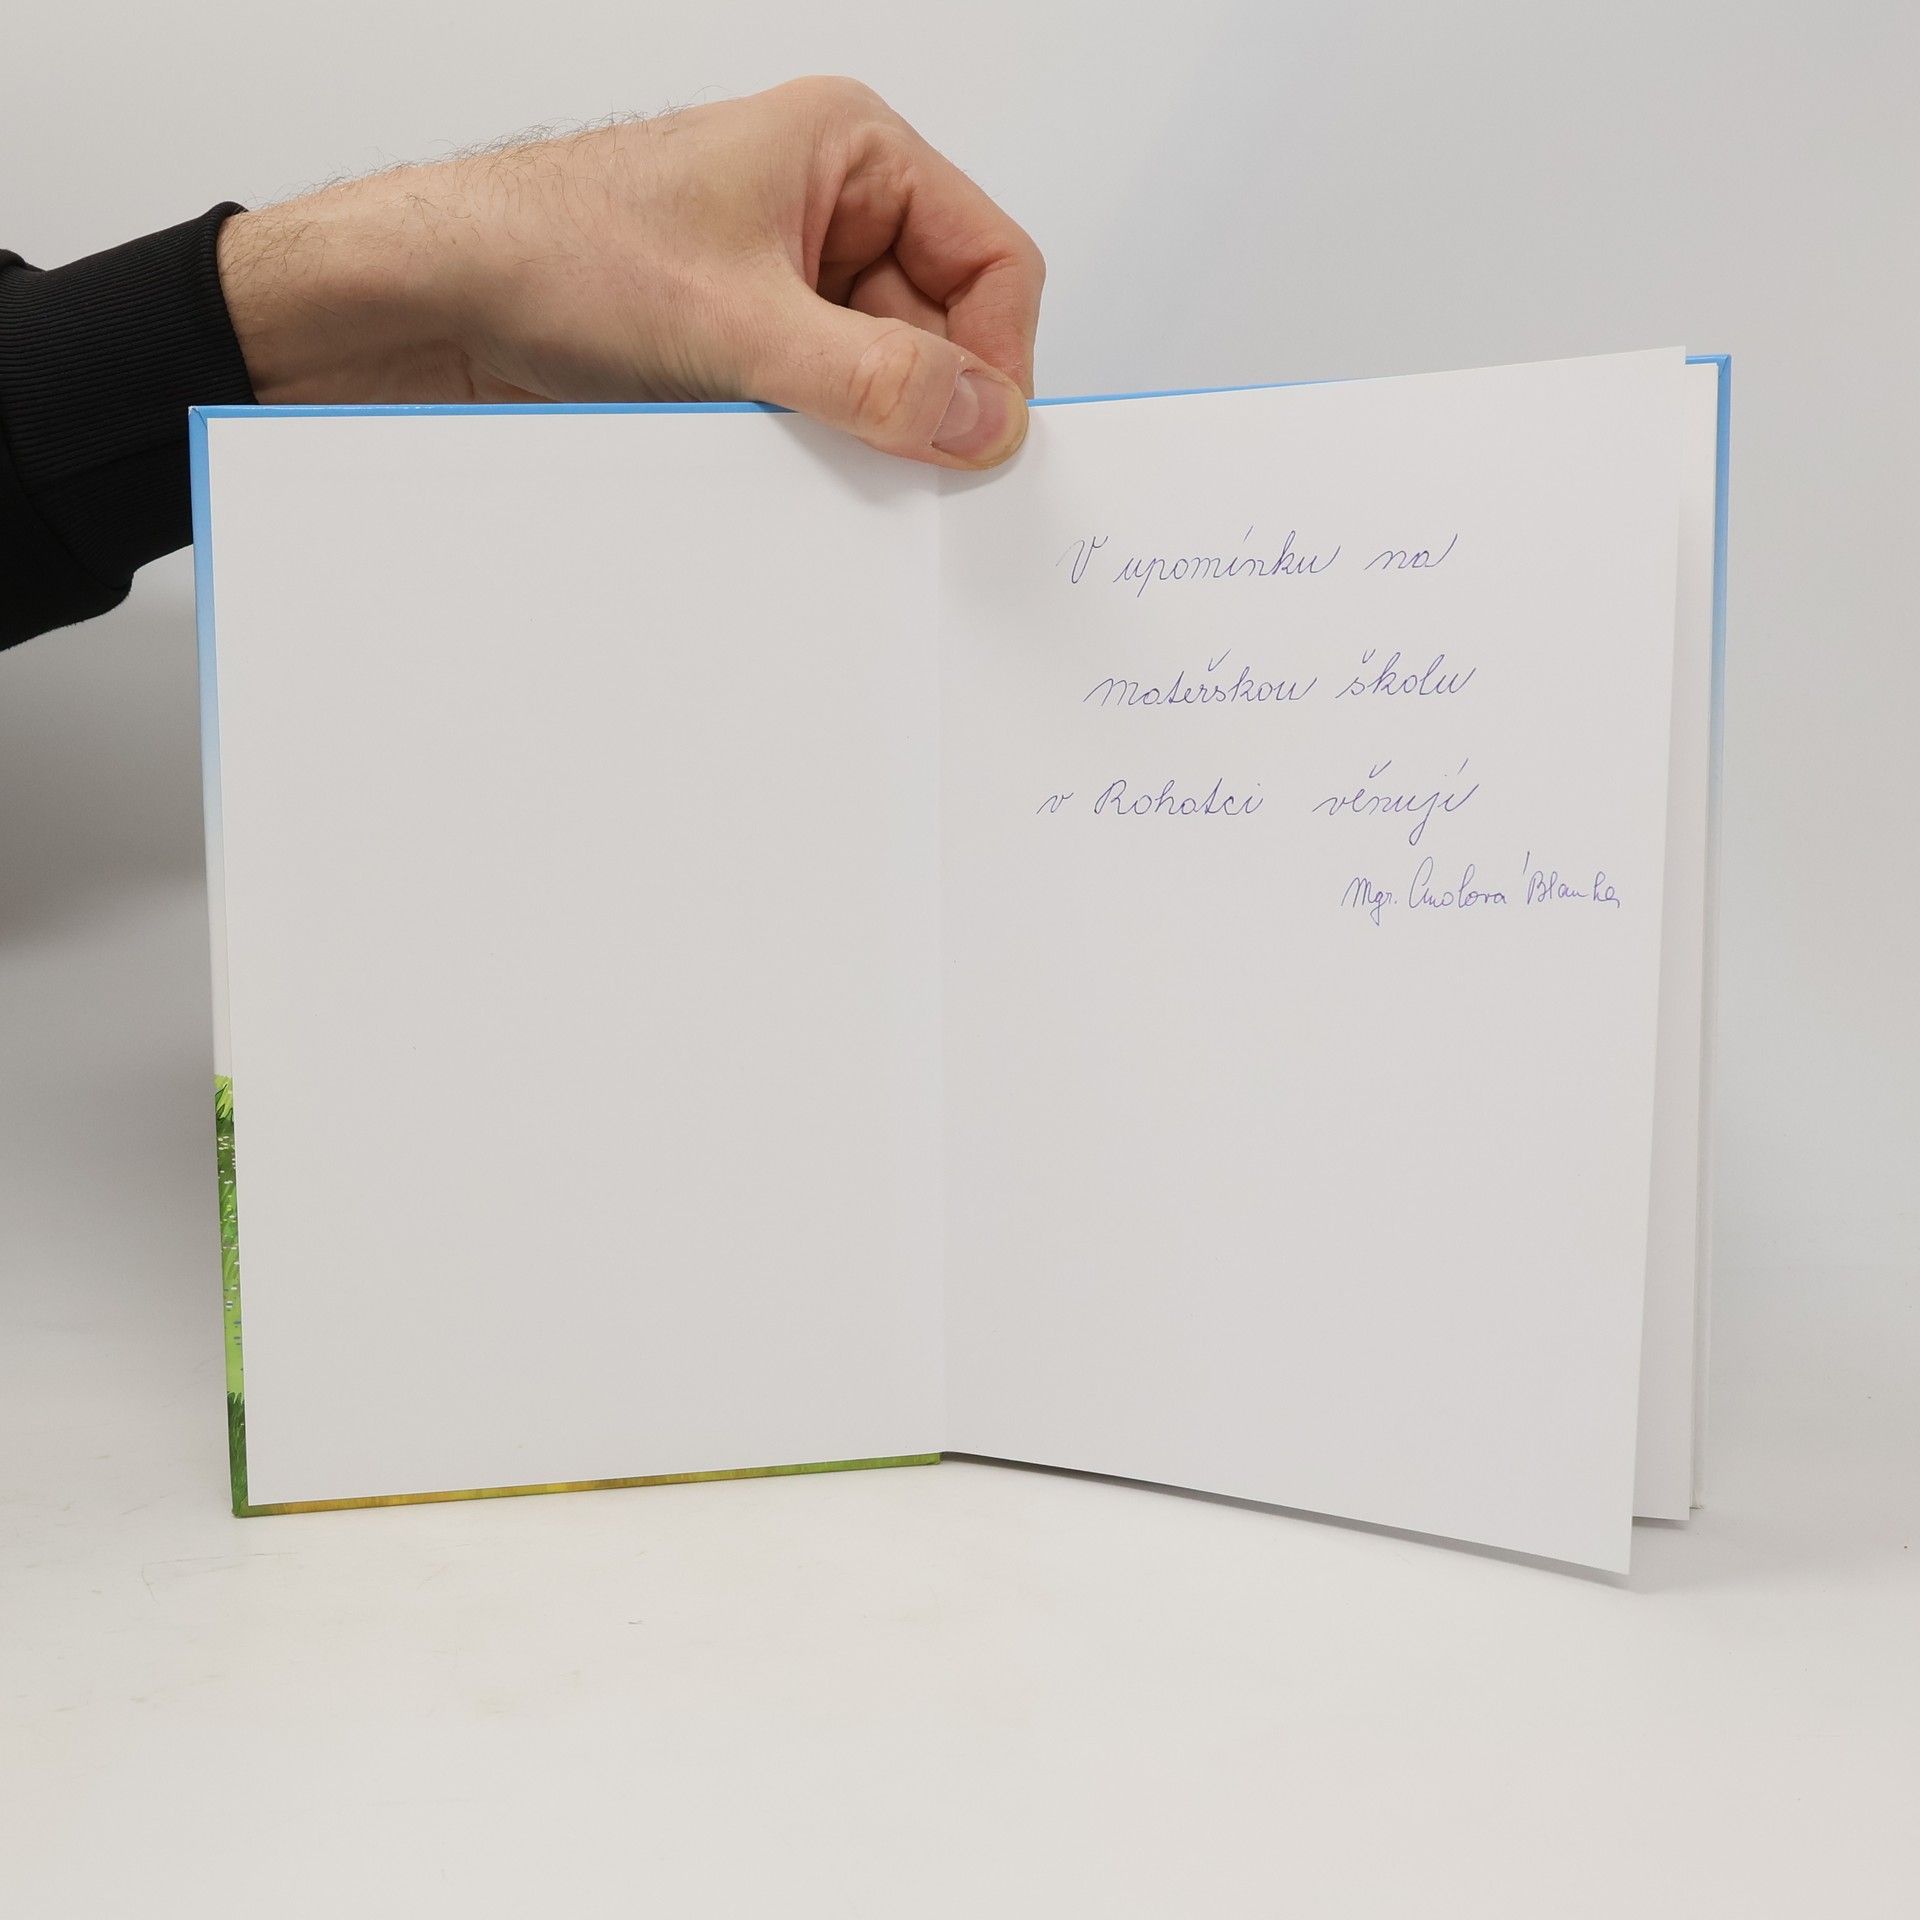 V upomínku na
mateřskou školu
v Rohatci věnují
Mgr. Blanka